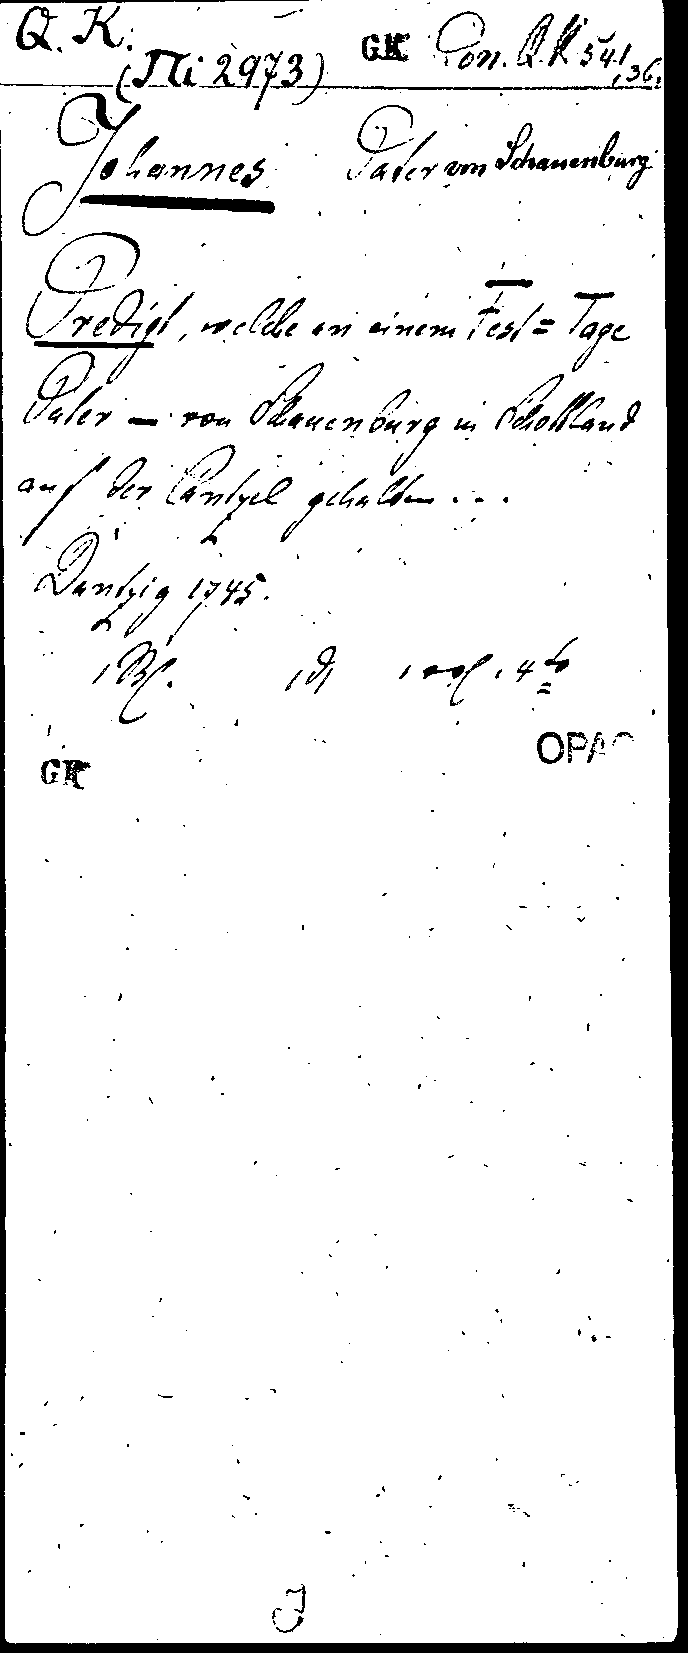 Q. K.
(Mi 2973)
GK Pon. Q. K 541,36.
Johannes Pater von Schauenburg
Predigt, welche an einem Fest= Tage
Pater — von Schauenburg in Schottland
auf der Cantzel gehalten ...
Dantzig 1745.
1 Bl. 1 vol. 4to
GK
OPAC